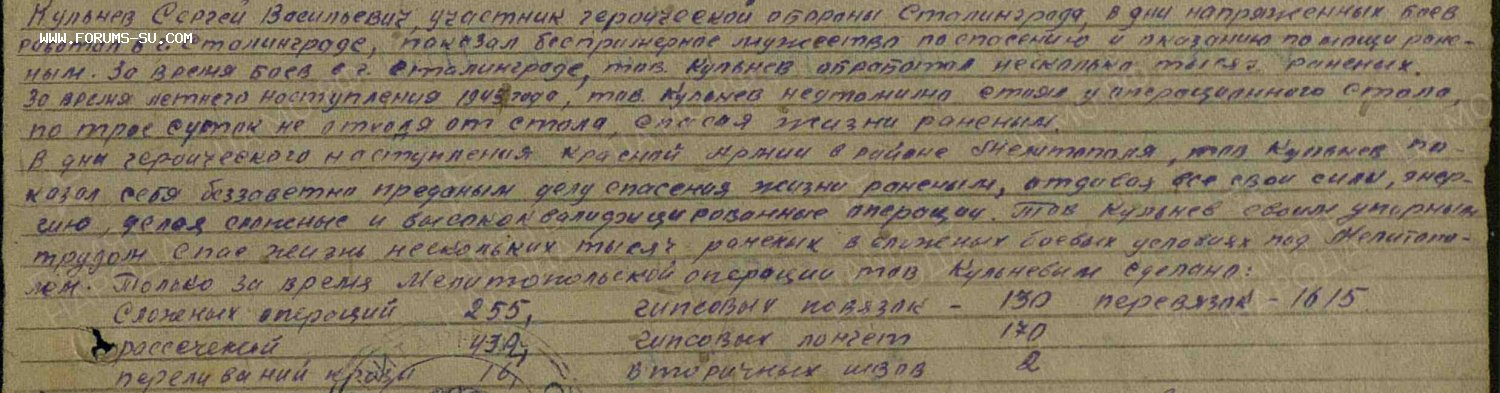 Кульнев Сергей Васильевич, участник героической обороны Сталинграда, в дни напряженных боев
www.forums-su.com
Сталинграде, показал беспримерное мужество по спасению и оказанию помощи ране-
ным. За время боев в г. Сталинграде, тов. Кульнев обработал несколько тысяч раненых.
За время летнего наступления 1943 года, тов. Кульнев неутомимо стоял у операционного стола,
по трое суток не отходя от стола, спасая жизни раненым.
В дни героического наступления Красной Армии в районе Мелитополя, тов Кульнев по-
казал себя беззаветно преданым делу спасения жизни раненым, отдавая все свои силы, энер-
гию, делая сложные и высококвалифицированные операции. Тов Кульнев своим упорным
трудом спас жизнь нескольких тысяч раненых в сложных боевых условиях под Мелитопо-
лем. Только за время Мелитопольской операции тов Кульневым сделано:
Сложных операций 255, гипсовых повязок - 130 перевязок - 1615
рассечений 432, гипсовых лонгет 170
переливаний крови 16, вторичных швов 2